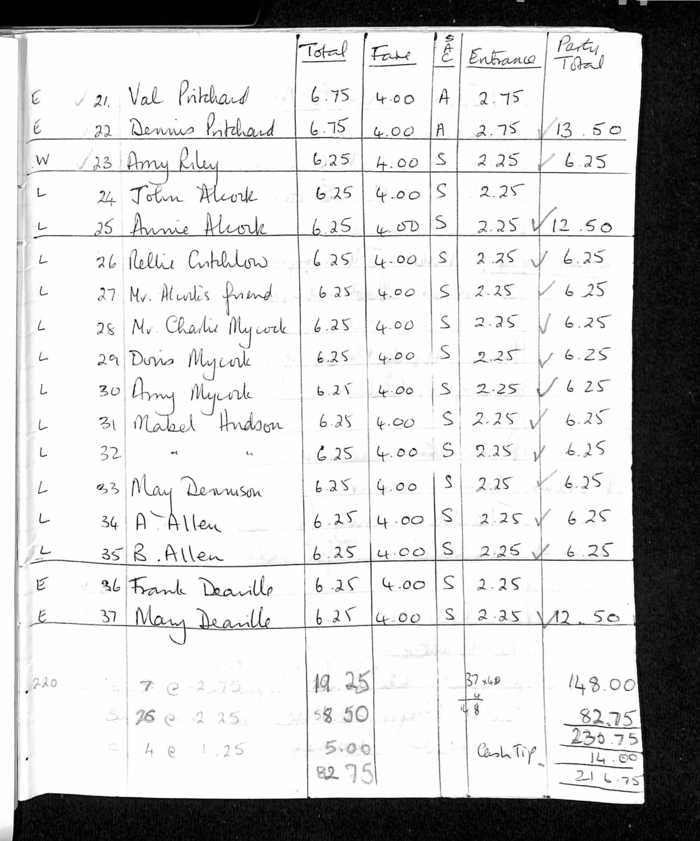 Total Fare SAC Entrance Party Total
E ✓ 21. Val Pritchard 6.75 4.00 A 2.75
E 22 Dennis Pritchard 6.75 4.00 A 2.75 ✓ 13.50
W ✓ 23 Amy Riley 6.25 4.00 S 2.25 ✓ 6.25
L 24 John Alcock 6.25 4.00 S 2.25
L 25 Annie Alcock 6.25 4.00 S 2.25 ✓ 12.50
L 26 Nellie Critchlow 6.25 4.00 S 2.25 ✓ 6.25
L 27 Mr. Alcock's friend 6.25 4.00 S 2.25 ✓ 6.25
L 28 Mr Charlie Mycock 6.25 4.00 S 2.25 ✓ 6.25
L 29 Doris Mycock 6.25 4.00 S 2.25 ✓ 6.25
L 30 Amy Mycock 6.25 4.00 S 2.25 ✓ 6.25
L 31 Mabel Hudson 6.25 4.00 S 2.25 ✓ 6.25
L 32 " " 6.25 4.00 S 2.25 ✓ 6.25
L 33 May Dennison 6.25 4.00 S 2.25 ✓ 6.25
L 34 A Allen 6.25 4.00 S 2.25 ✓ 6.25
L 35 B. Allen 6.25 4.00 S 2.25 ✓ 6.25
E 36 Frank Deaville 6.25 4.00 S 2.25
E 37 Mary Deaville 6.25 4.00 S 2.25 ✓ 12.50
220 7 @ 2.75 19 25 148.00
S 26 @ 2 25 58.50 82.75
C 4 @ 1.25 5.00 230.75
82 75 Cash Tip 14.00
216.75